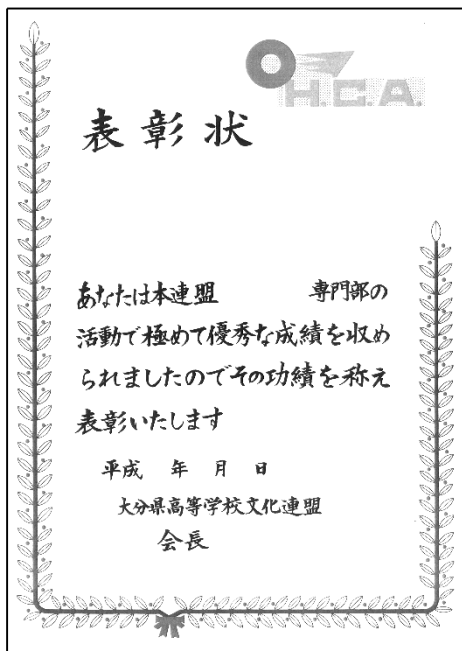 OH.C.A.
表彰状
あなたは本連盟　　　専門部の
活動で極めて優秀な成績を収め
られましたのでその功績を称え
表彰いたします
平成　年　月　日
大分県高等学校文化連盟
会長